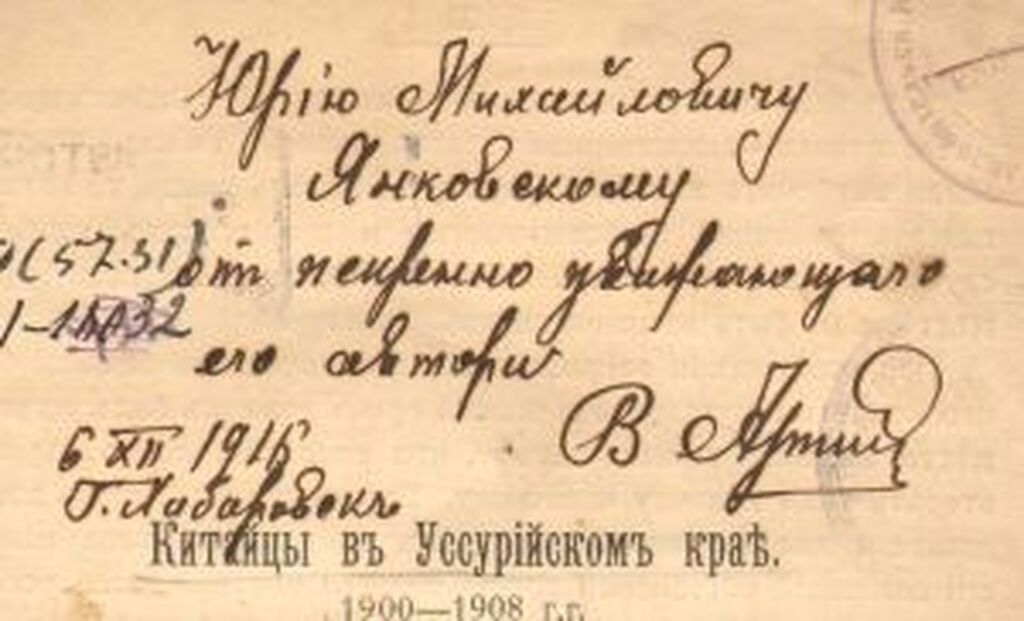 Юрію Михайловичу
Янковскому
(57.31)
от искренно уважающаго
его автора
В Арсен
6 XII 1916
Г. Хабаровскъ
Китайцы въ Уссурійскомъ краѣ.
1900—1908 г.г.